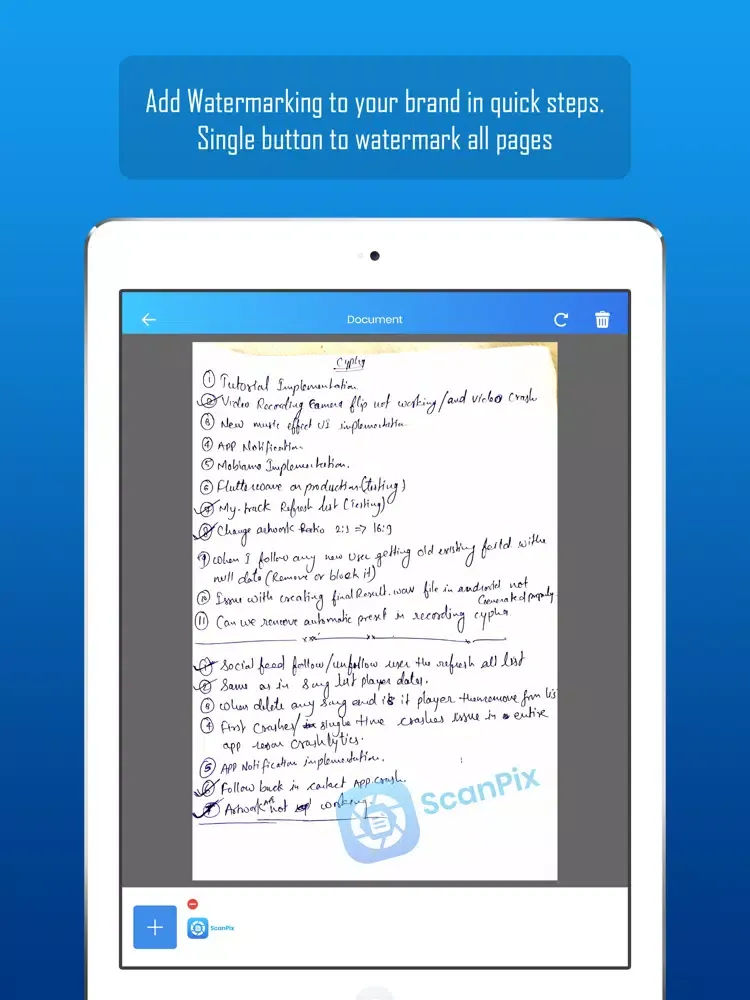 Add Watermarking to your brand in quick steps.
Single button to watermark all pages
Document
Cypher
① Tutorial Implementation
② Video Recording Camera flip not working/and video crash
③ New music effect UI implementation
④ APP Notification
⑤ Implementation.
⑥ Flutterwave on production (testing)
⑦ My-track Refresh list (Testing)
⑧ Change artwork Ratio 2:1 => 16:9
⑨ When I follow any new user getting old existing with
null data (Remove or block it)
⑩ Issue with creating finalResult.wav file in android not
Generated properly
⑪ Can we remove automatic preset in recording cypher
① Social feed follow/unfollow user the refresh all list
② Same as in Song list player dates.
③ When delete any song and it player then remove from list
④ First Crashes/ single time crashes issue in entire
app Crashlytics.
⑤ APP Notification implementation.
⑥ Follow back in contact APP crash.
⑦ Artwork API not working.
ScanPix
ScanPix